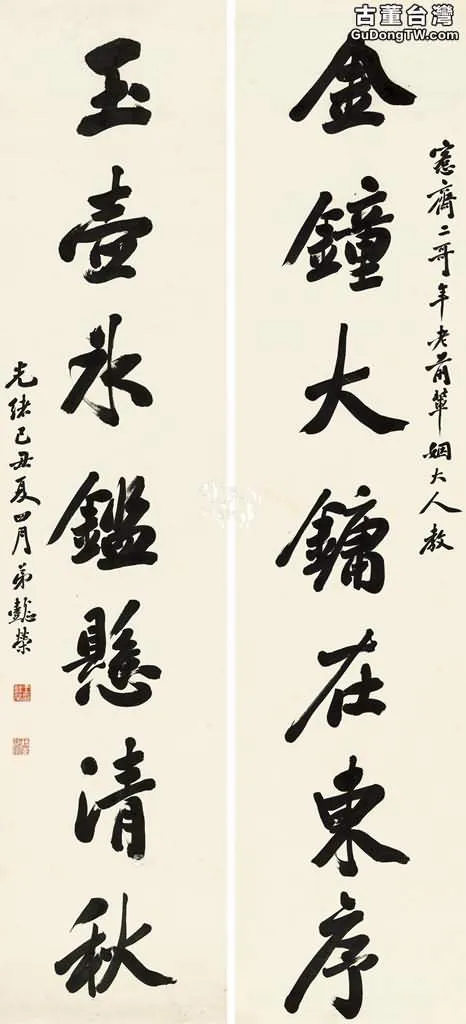 古董台灣
GuDongTW.com
愙齋二哥年老前輩姻大人教
金鐘大鏞在東序
玉壺氷鑑懸清秋
光緒己丑夏四月弟懿榮